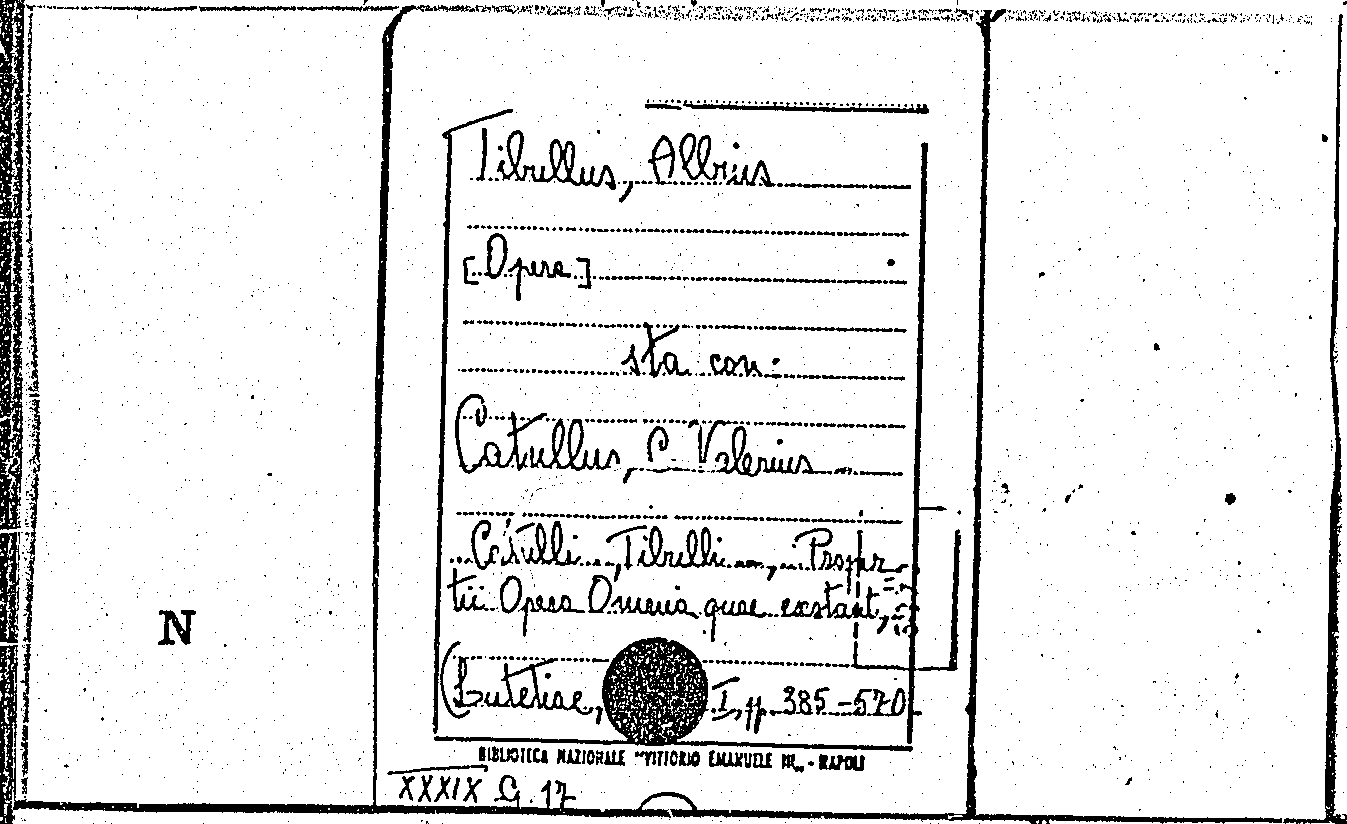 Tibullus, Albius
[Opera]
sta con:
Catullus, C. Valerius
Catulli, Tibulli, Proper
tii Opera Omnia quae exstant,
N
(Lutetiae, I, pp. 385-570
BIBLIOTECA NAZIONALE "VITTORIO EMANUELE III" - NAPOLI
XXXIX G. 17